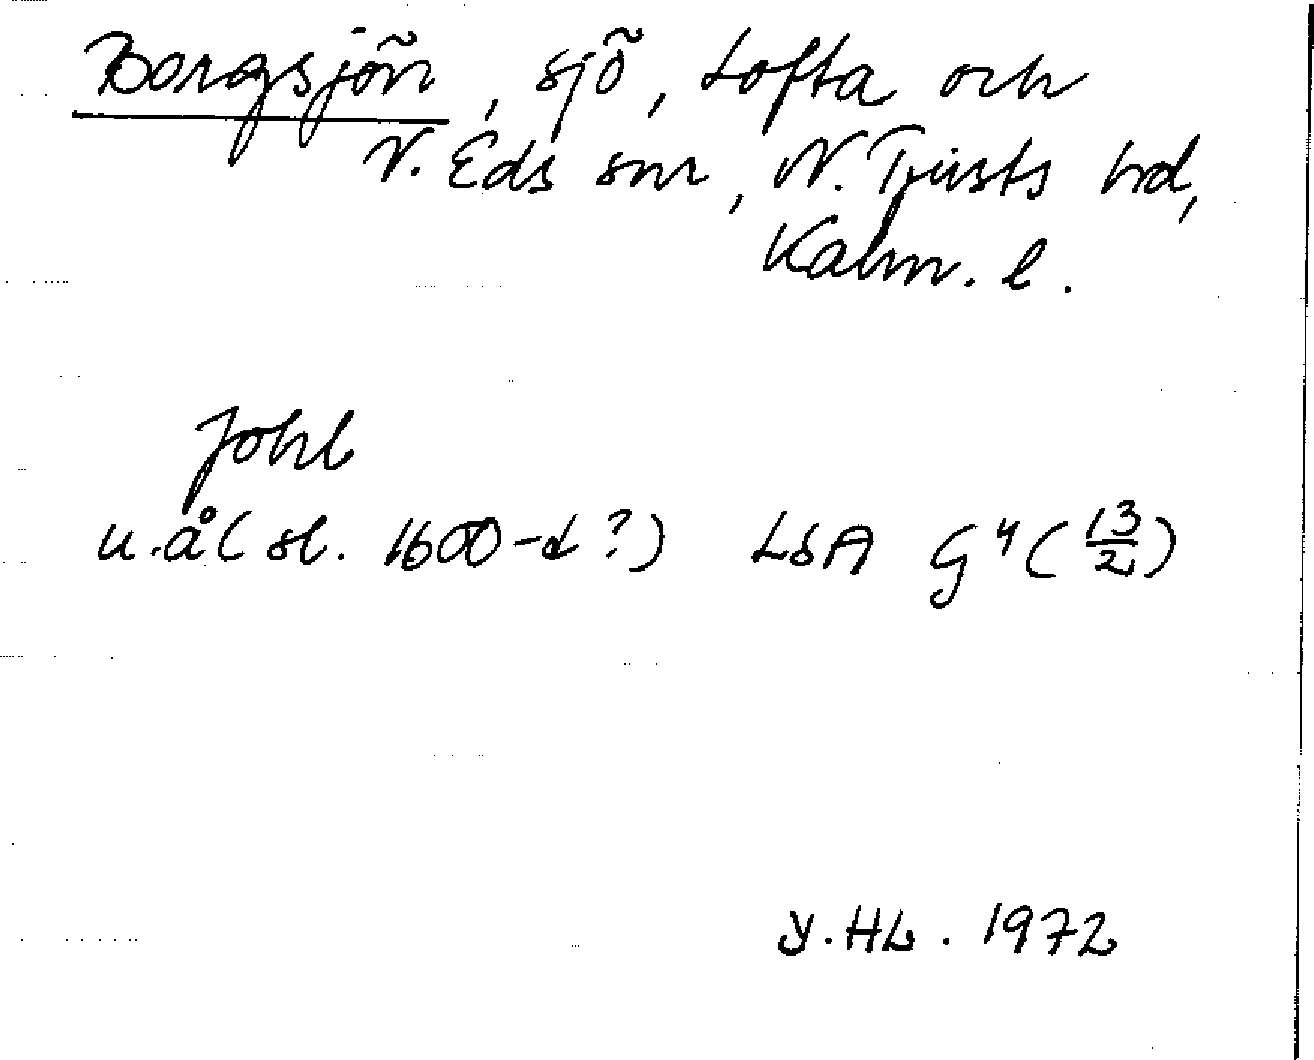 Borgsjön, sjö, Lofta och
V. Eds snr, N. Tjusts hd,
Kalm. l.
Johl
u.å (sl. 1600-t ?) LSA G⁴ (13/2)
Y.HL. 1972